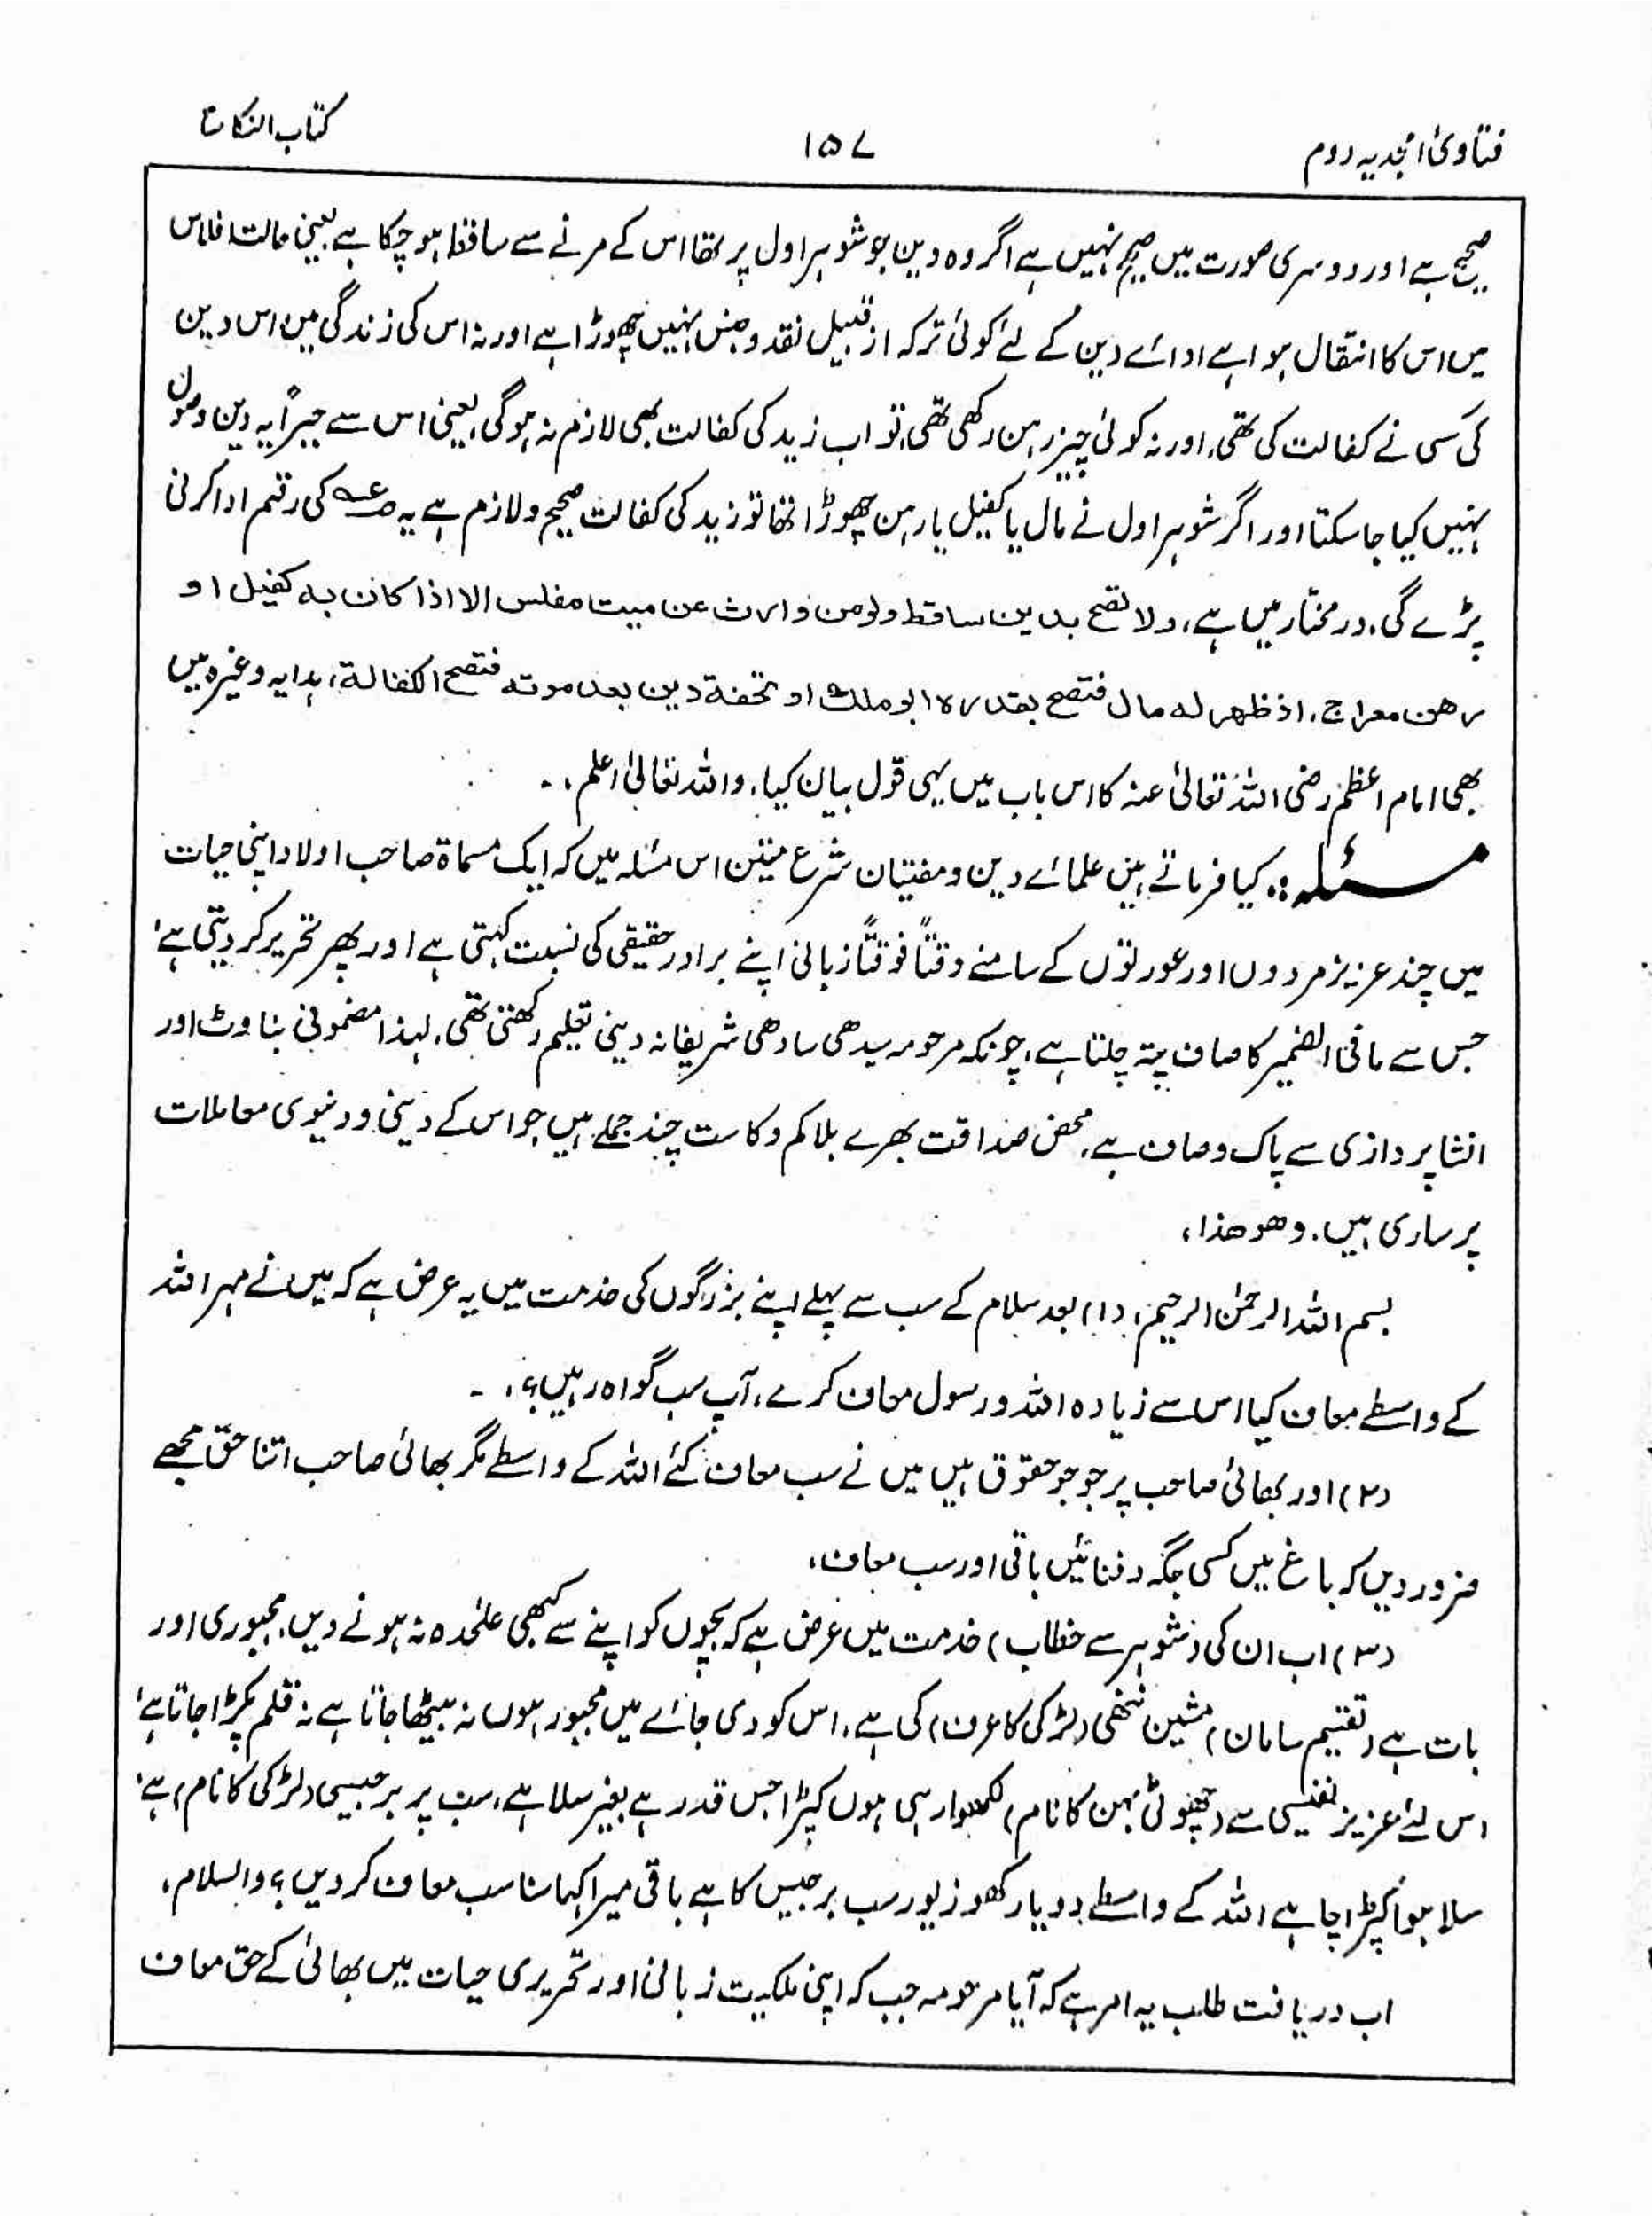 فتاویٰ امجدیہ دوم
۱۵۷
کتاب النکاح
صحیح ہے اور دوسری صورت میں صحیح نہیں ہے اگر وہ دین جو شوہر اول پر تھا اس کے مرنے سے ساقط ہو چکا ہے یعنی حالت افلاس
میں اس کا انتقال ہوا ہے ادائے دین کے لئے کوئی ترکہ از قبیل نقد و جنس نہیں چھوڑا ہے اور نہ اس کی زندگی میں اس دین
کی کسی نے کفالت کی تھی، اور نہ کوئی چیز رہن رکھی تھی، تو اب زید کی کفالت بھی لازم نہ ہوگی، یعنی اس سے جبراً یہ دین وصول
نہیں کیا جا سکتا اور اگر شوہر اول نے مال یا کفیل یا رہن چھوڑا تھا تو زید کی کفالت صحیح و لازم ہے یہ کی رقم ادا کرنی
پڑے گی، درمختار میں ہے، ولا تصح بدین ساقط ولو من وارث عن میت مفلس الا اذا کان بہ کفیل او
رهن معراج، اذ ظهر له مال فتصح بقدره ابو ملك او تحفة دين بعد موته فتصح الكفالة، ہدایہ وغیرہ میں
بھی امام اعظم رضی اللہ تعالیٰ عنہ کا اس باب میں یہی قول بیان کیا، واللہ تعالیٰ اعلم،۔
مسئلہ:۔ کیا فرماتے ہیں علمائے دین و مفتیان شرع متین اس مسئلہ میں کہ ایک مسماۃ صاحب اولاد اپنی حیات
میں چند عزیز مردوں اور عورتوں کے سامنے وقتاً فوقتاً زبانی اپنے برادر حقیقی کی نسبت کہتی ہے اور پھر تحریر کر دیتی ہے،
جس سے مافی الضمیر کا صاف پتہ چلتا ہے، چونکہ مرحومہ سیدھی سادھی شریفانہ دینی تعلیم رکھتی تھی، لہذا مضمونی بناوٹ اور
انشا پردازی سے پاک و صاف ہے، محض صداقت بھرے بلا کم و کاست چند جملے ہیں جو اس کے دینی و دنیوی معاملات
پر ساری ہیں. وهو هذا،
بسم اللہ الرحمٰن الرحیم، (۱) بعد سلام کے سب سے پہلے اپنے بزرگوں کی خدمت میں یہ عرض ہے کہ میں نے مہر اللہ
کے واسطے معاف کیا اس سے زیادہ اللہ و رسول معاف کرے، آپ سب گواہ رہیں؟،۔
(۲) اور بھائی صاحب پر جو جو حقوق ہیں میں نے سب معاف کئے اللہ کے واسطے مگر بھائی صاحب اتنا حق مجھے
ضرور دیں کہ باغ میں کسی جگہ دفنائیں باقی اور سب معاف،
(۳) اب ان کی (شوہر سے خطاب) خدمت میں عرض ہے کہ بچوں کو اپنے سے کبھی علٰحدہ نہ ہونے دیں، مجبوری اور
بات ہے (تقسیم سامان) مشین ننھی (لڑکی کا عرف) کی ہے، اس کو دی جائے میں مجبور ہوں نہ بیٹھا جاتا ہے نہ قلم پکڑا جاتا ہے،
اس لئے عزیز نفیسی سے (چھوٹی بہن کا نام) لکھوا رہی ہوں کپڑا جس قدر ہے بغیر سلا ہے، سب پر برجیسی (لڑکی کا نام) ہے،
سلا ہوا کپڑا چاہے اللہ کے واسطے دو یا رکھو زیور سب برجیس کا ہے باقی میرا کہا سنا سب معاف کر دیں؟ والسلام،
اب دریافت طلب یہ امر ہے کہ آیا مرحومہ جب کہ اپنی ملکیت زبانی اور تحریری حیات میں بھائی کے حق معاف